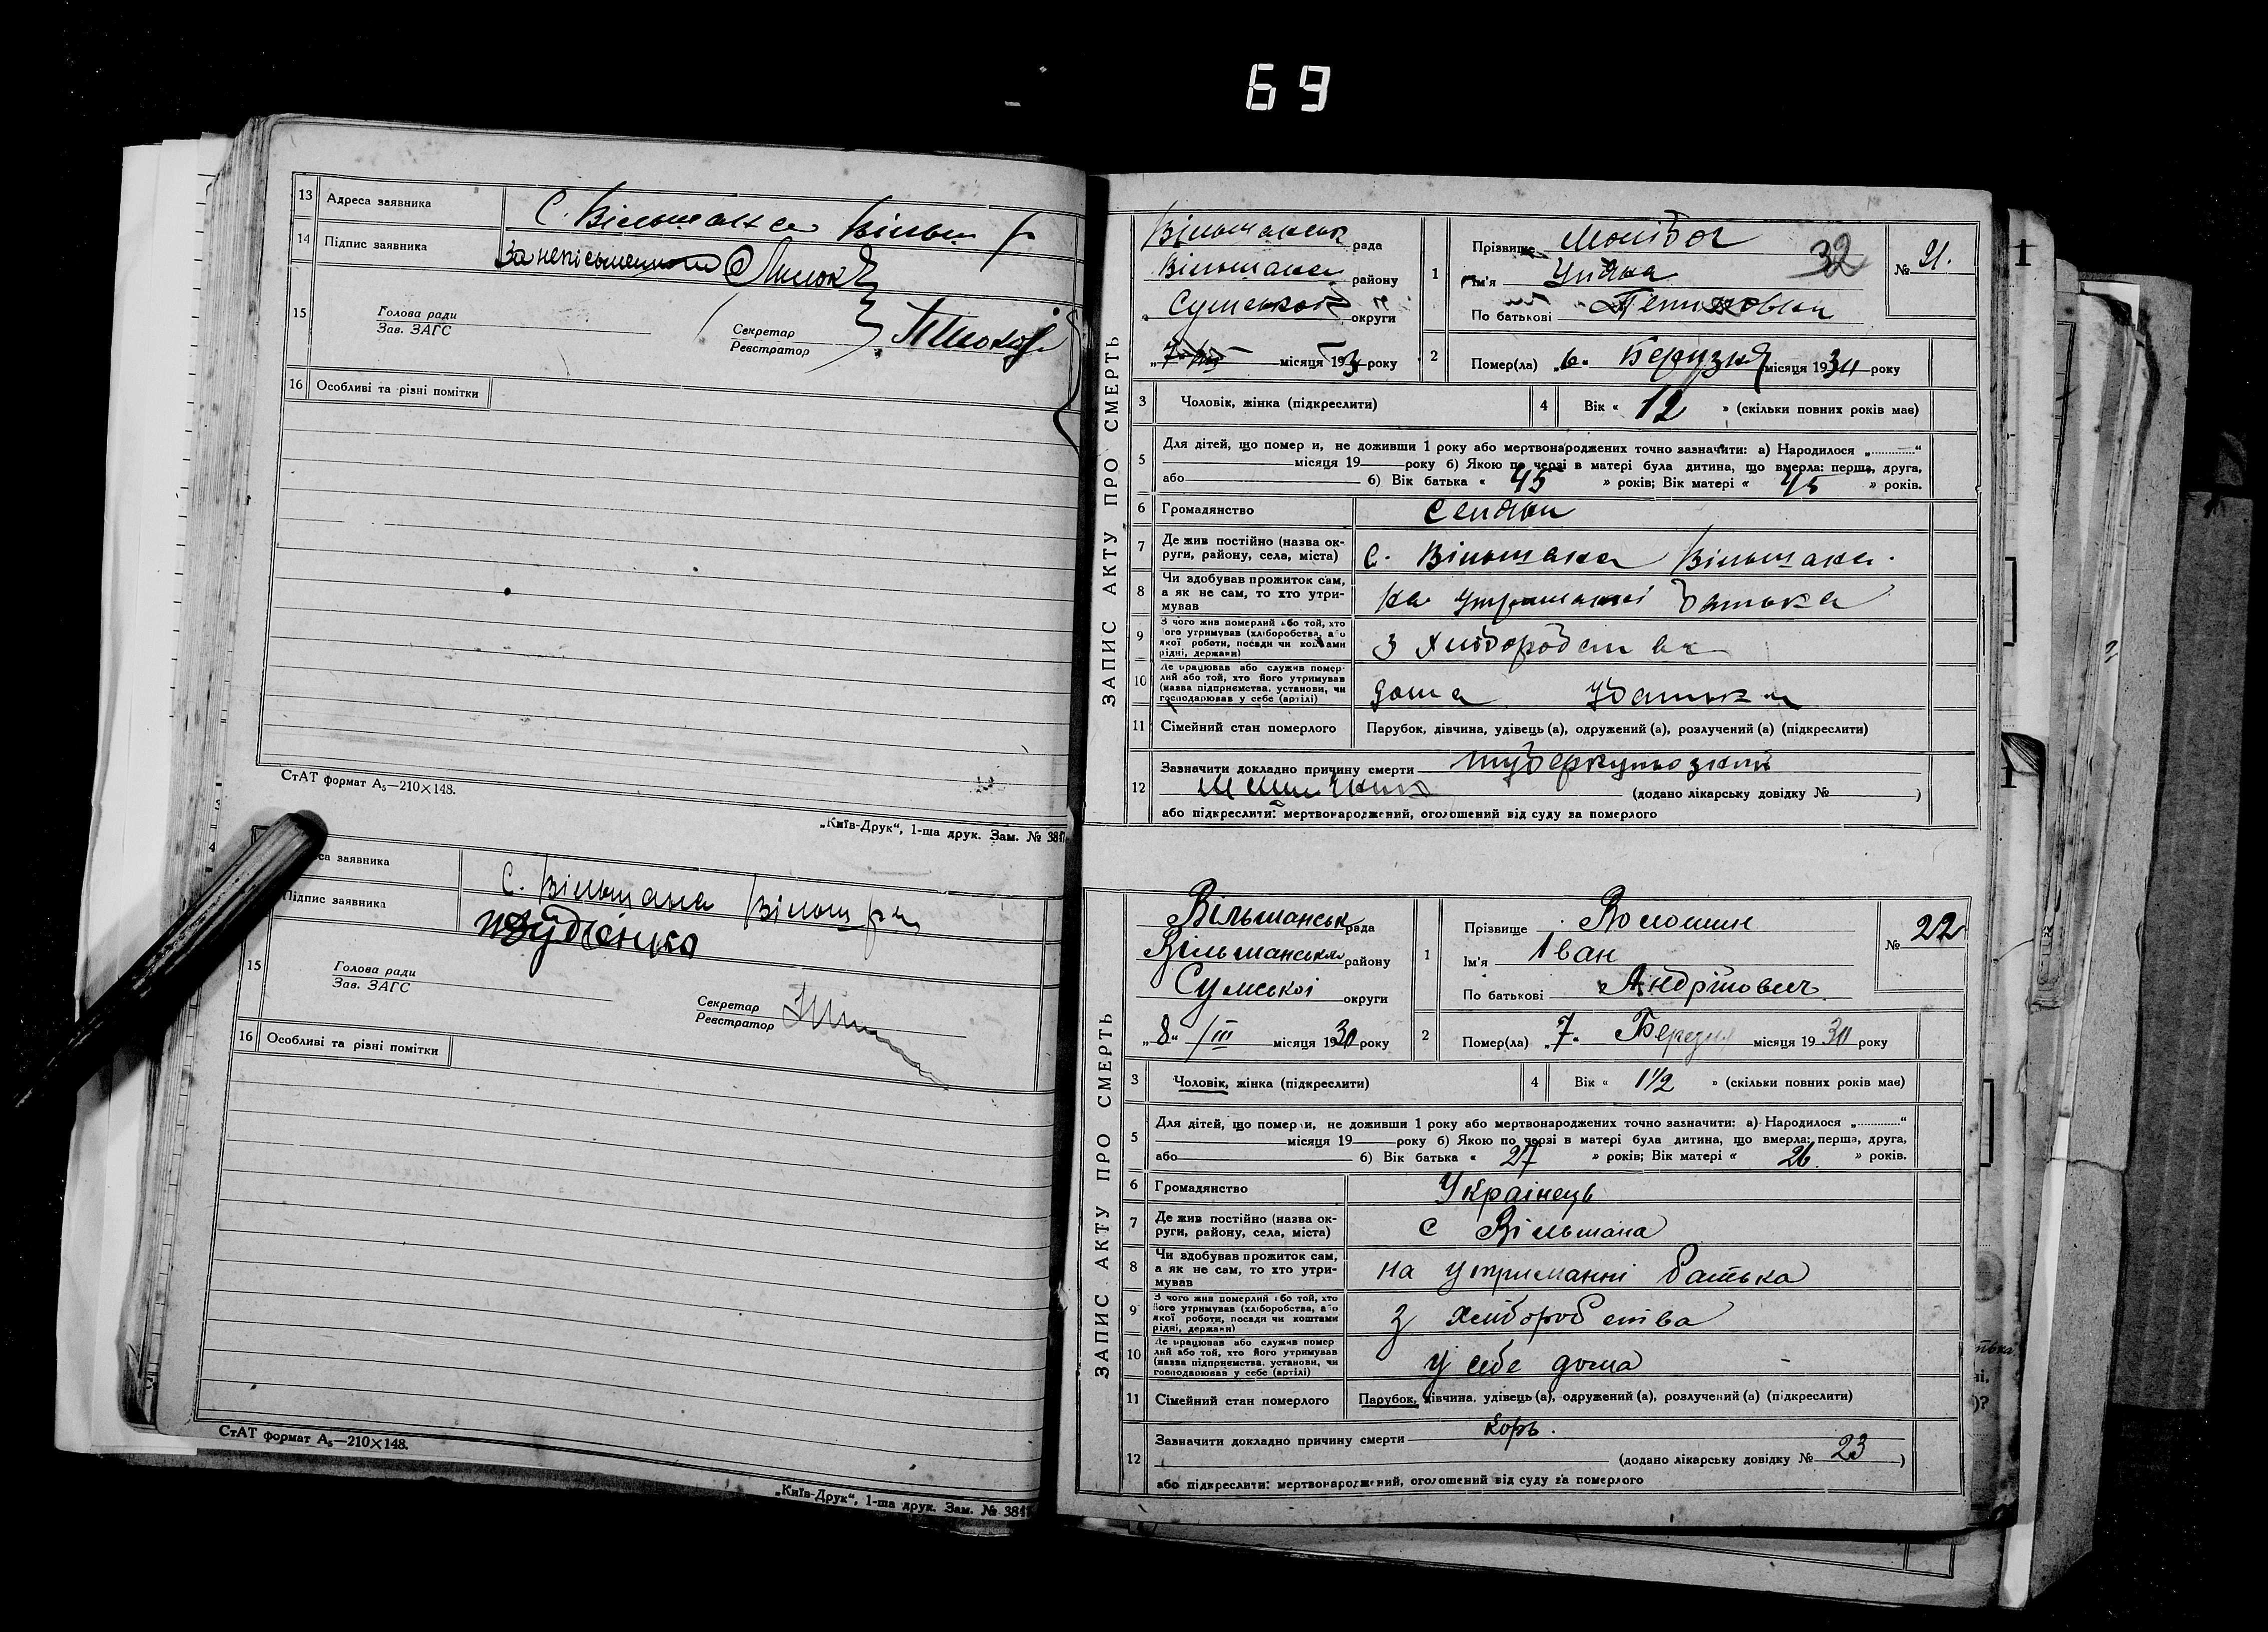 69
13 Адреса заявника С. Вільшанка Вільш р
14 Підпис заявника За неписьменного
15 Голова ради
Зав. ЗАГС
Секретар
Реєстратор
16 Особливі та різні помітки
СтАТ формат А₅—210×148.
„Київ-Друк“, 1-ша друк. Зам. № 384
са заявника С. Вільшана Вільш р-н
Підпис заявника
15 Голова ради
Зав. ЗАГС
Секретар
Реєстратор
16 Особливі та різні помітки
СтАТ формат А₅—210×148.
„Київ-Друк“, 1-ша друк. Зам. № 384
ЗАПИС АКТУ ПРО СМЕРТЬ
Вільшанськ рада
Вільшанск району
Сумської округи
місяця 193 року
1 Прізвище
32
Ім'я Уляна
По батькові
№ 21.
2 Помер(ла) „6“ Березня місяця 1930 року
3 Чоловік, жінка (підкреслити)
4 Вік « 12 » (скільки повних років має)
5 Для дітей, що померли, не доживши 1 року або мертвонароджених точно зазначити: а) Народилося „............“
місяця 19 року б) Якою по черзі в матері була дитина, що вмерла: перша, друга,
або б) Вік батька « 45 » років; Вік матері « 45 » років.
6 Громадянство Селяни
7 Де жив постійно (назва ок-
руги, району, села, міста) С. Вільшана Вільшанс.
8 Чи здобував прожиток сам,
а як не сам, то хто утри-
мував на утриманні батька
9 З чого жив померлий або той, хто
його утримував (хліборобства, або
якої роботи, посади чи коштами
рідні, держави) З хліборобства
10 Де працював або служив помер-
лий або той, хто його утримував
(назва підприємства, установи, чи
господарював у себе (артілі) дома у батька
11 Сімейний стан померлого Парубок, дівчина, удівець (а), одружений (а), розлучений (а) (підкреслити)
12 Зазначити докладно причину смерти туберкульозний
(додано лікарську довідку № )
або підкреслити: мертвонароджений, оголошений від суду за померлого
ЗАПИС АКТУ ПРО СМЕРТЬ
Вільшанськ рада
Вільшанськ району
Сумської округи
„8“ /III місяця 1930 року
1 Прізвище Волошин
Ім'я Іван
По батькові Андрійович
№ 22
2 Помер(ла) „7“ Березня місяця 1930 року
3 Чоловік, жінка (підкреслити)
4 Вік « 1 1/2 » (скільки повних років має)
5 Для дітей, що померли, не доживши 1 року або мертвонароджених точно зазначити: а) Народилося „............“
місяця 19 року б) Якою по черзі в матері була дитина, що вмерла: перша, друга,
або б) Вік батька « 27 » років; Вік матері « 26 » років.
6 Громадянство Українець
7 Де жив постійно (назва ок-
руги, району, села, міста) с Вільшана
8 Чи здобував прожиток сам,
а як не сам, то хто утри-
мував на утриманні батька
9 З чого жив померлий або той, хто
його утримував (хліборобства, або
якої роботи, посади чи коштами
рідні, держави) З хліборобства
10 Де працював або служив помер
лий або той, хто його утримував
(назва підприємства, установи, чи
господарював у себе (артілі) у себе дома
11 Сімейний стан померлого Парубок, дівчина, удівець (а), одружений (а), розлучений (а) (підкреслити)
12 Зазначити докладно причину смерти Корь.
(додано лікарську довідку № 23 )
або підкреслити: мертвонароджений, оголошений від суду за померлого